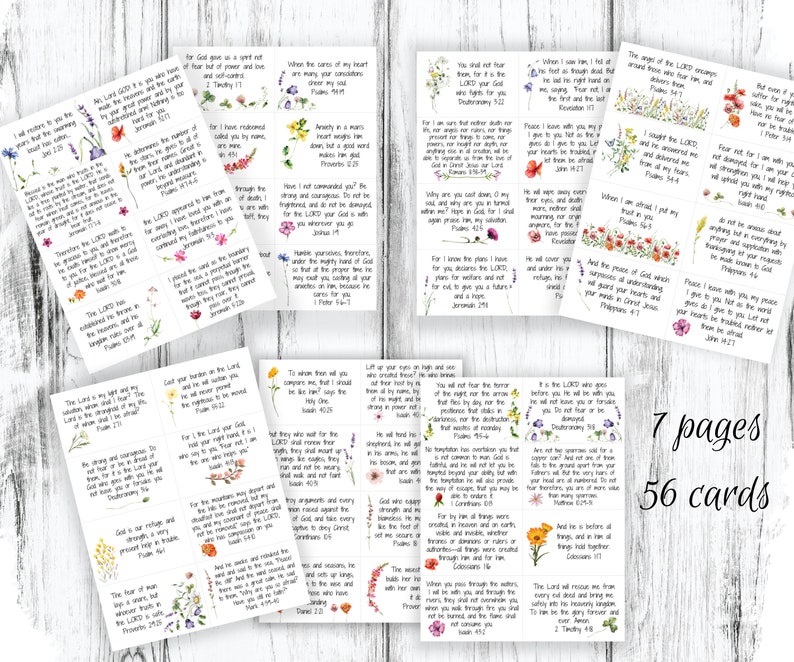 I will restore to you the
years that the swarming
locust has eaten.
Joel 2:25
Ah, Lord GOD! It is you who have
made the heavens and the earth
by your great power and by your
outstretched arm! Nothing is too
hard for you.
Jeremiah 32:17
Blessed is the man who trusts in the
LORD, whose trust is the LORD. He is
like a tree planted by water, that sends
out its roots by the stream, and does not
fear when heat comes, for its leaves
remain green, and is not anxious in the
year of drought, for it does not cease to
bear fruit.
Jeremiah 17:7-8
He determines the number of
the stars; he gives to all of
them their names. Great is
our Lord, and abundant in
power; his understanding is
beyond measure.
Psalms 147:4-5
Therefore the LORD waits to be
gracious to you, and therefore
he exalts himself to show mercy
to you. For the LORD is a God
of justice; blessed are all those
who wait for him.
Isaiah 30:18
the LORD appeared to him from
far away. I have loved you with an
everlasting love; therefore I have
continued my faithfulness to you.
Jeremiah 31:3
The LORD has
established his throne in
the heavens, and his
kingdom rules over all.
Psalms 103:19
I placed the sand as the boundary
for the sea, a perpetual barrier
that it cannot pass; though the
waves toss, they cannot prevail;
though they roar, they cannot
pass over it.
Jeremiah 5:22b
for God gave us a spirit not
of fear but of power and love
and self-control.
2 Timothy 1:7
When the cares of my heart
are many, your consolations
cheer my soul.
Psalms 94:19
for I have redeemed
called you by name,
are mine.
43:1
Anxiety in a man's
heart weighs him
down, but a good word
makes him glad.
Proverbs 12:25
Have I not commanded you? Be
strong and courageous. Do not be
frightened, and do not be dismayed,
for the LORD your God is with
you wherever you go.
Joshua 1:9
Humble yourselves, therefore,
under the mighty hand of God
so that at the proper time he
may exalt you, casting all your
anxieties on him, because he
cares for you.
1 Peter 5:6-7
You shall not fear
them, for it is the
LORD your God
who fights for you.
Deuteronomy 3:22
When I saw him, I fell at
his feet as though dead. But
he laid his right hand on
me, saying, "Fear not, I am
the first and the last
Revelation 1:17
For I am sure that neither death nor
life, nor angels nor rulers, nor things
present nor things to come, nor
powers, nor height nor depth, nor
anything else in all creation, will be
able to separate us from the love of
God in Christ Jesus our Lord.
Romans 8:38-39
Peace I leave with you, my
Not as the world
Let not
your hearts be troubled,
John 14:27
Why are you cast down, O my
soul, and why are you in turmoil
within me? Hope in God; for I shall
again praise him, my salvation.
Psalms 42:5
He will wipe away every
their eyes, and death
more, neither shall
mourning, nor crying,
anymore, for the
have passed
Revelation
For I know the plans I have
for you, declares the LORD,
plans for welfare and not
for evil, to give you a future
and a hope.
Jeremiah 29:11
He will cover you
and under his
refuge; his
The angel of the LORD encamps
around those who fear him, and
delivers them.
Psalms 34:7
But even if you
suffer for righteous
sake, you will be
Have no fear of
nor be
1 Peter 3:14
I sought the LORD,
and he answered me
and delivered me
from all my fears.
Psalms 34:4
Fear not, for I am with you;
not dismayed, for I am your
I will strengthen you, I will
help you, I will
uphold you with my righteous
right hand.
Isaiah 41:10
When I am afraid, I put my
trust in you.
Psalms 56:3
do not be anxious about
anything, but in everything by
prayer and supplication with
thanksgiving let your requests
be made known to God.
Philippians 4:6
And the peace of God, which
surpasses all understanding,
will guard your hearts and
your minds in Christ Jesus.
Philippians 4:7
Peace I leave with you; my peace
I give to you. Not as the world
gives do I give to you. Let not
your hearts be troubled, neither let
them be afraid.
John 14:27
The Lord is my light and my
salvation; whom shall I fear? The
LORD is the stronghold of my life;
of whom shall I be afraid?
Psalm 27:1
Cast your burden on the Lord,
and he will sustain you;
he will never permit
the righteous to be moved.
Psalm 55:22
Be strong and courageous. Do
not fear or be in dread of
them, for it is the Lord your
God who goes with you. He will
not leave you or forsake you.
Deuteronomy 31:6
For I, the Lord your God,
hold your right hand; it is I
who say to you, "Fear not, I am
the one who helps you."
Isaiah 41:13
God is our refuge and
strength, a very
present help in trouble.
Psalm 46:1
For the mountains may depart and
the hills be removed, but my
steadfast love shall not depart from
you, and my covenant of peace shall
not be removed," says the LORD,
who has compassion on you.
Isaiah 54:10
The fear of man
lays a snare, but
whoever trusts in
the LORD is safe.
Proverbs 29:25
And he awoke and rebuked the
wind and said to the sea, "Peace!
Be still!" And the wind ceased, and
there was a great calm. He said
to them, "Why are you so afraid?
Have you still no faith?"
Mark 4:39-40
To whom then will you
compare me, that I should
be like him? says the
Holy One.
Isaiah 40:25
Lift up your eyes on high and see:
who created these? He who brings
out their host by
them all by name, by
of his might, and
strong in power not
Isaiah 40:26
but they who wait for the
LORD shall renew their
strength; they shall mount up
wings like eagles; they
run and not be weary;
shall walk and not faint.
Isaiah 40:31
He will tend his
shepherd; he will
in his arms; he
his bosom, and gently
that are with
Isaiah 40:11
arguments and every
opinion raised against the
of God, and take every
captive to obey Christ,
Corinthians 10:5
God who equipped
strength and made
blameless. He made
like the feet of
set me secure on
Psalms 18
times and seasons; he
and sets up kings;
wisdom to the wise and
to those who have
understanding.
Daniel 2:21
The wisest
builds her
but
with her own
tears
You will not fear the terror
of the night, nor the arrow
that flies by day, nor the
pestilence that stalks in
darkness, nor the destruction
that wastes at noonday.
Psalms 91:5-6
It is the LORD who goes
before you. He will be with you;
he will not leave you or forsake
you. Do not fear or be
dismayed.
Deuteronomy 31:8
No temptation has overtaken you that
is not common to man. God is
faithful, and he will not let you be
tempted beyond your ability, but with
the temptation he will also provide
the way of escape, that you may be
able to endure it.
1 Corinthians 10:13
Are not two sparrows sold for a
copper coin? And not one of them
falls to the ground apart from your
Father's will. But the very hairs of
your head are all numbered. Do not
fear therefore; you are of more value
than many sparrows.
Matthew 10:29-31
For by him all things were
created, in heaven and on earth,
visible and invisible, whether
thrones or dominions or rulers or
authorities—all things were created
through him and for him.
Colossians 1:16
And he is before all
things, and in him all
things hold together.
Colossians 1:17
When you pass through the waters,
I will be with you; and through the
rivers, they shall not overwhelm you;
when you walk through fire you shall
not be burned, and the flame shall
not consume you.
Isaiah 43:2
The Lord will rescue me from
every evil deed and bring me
safely into his heavenly kingdom.
To him be the glory forever and
ever. Amen.
2 Timothy 4:18
7 pages
56 cards